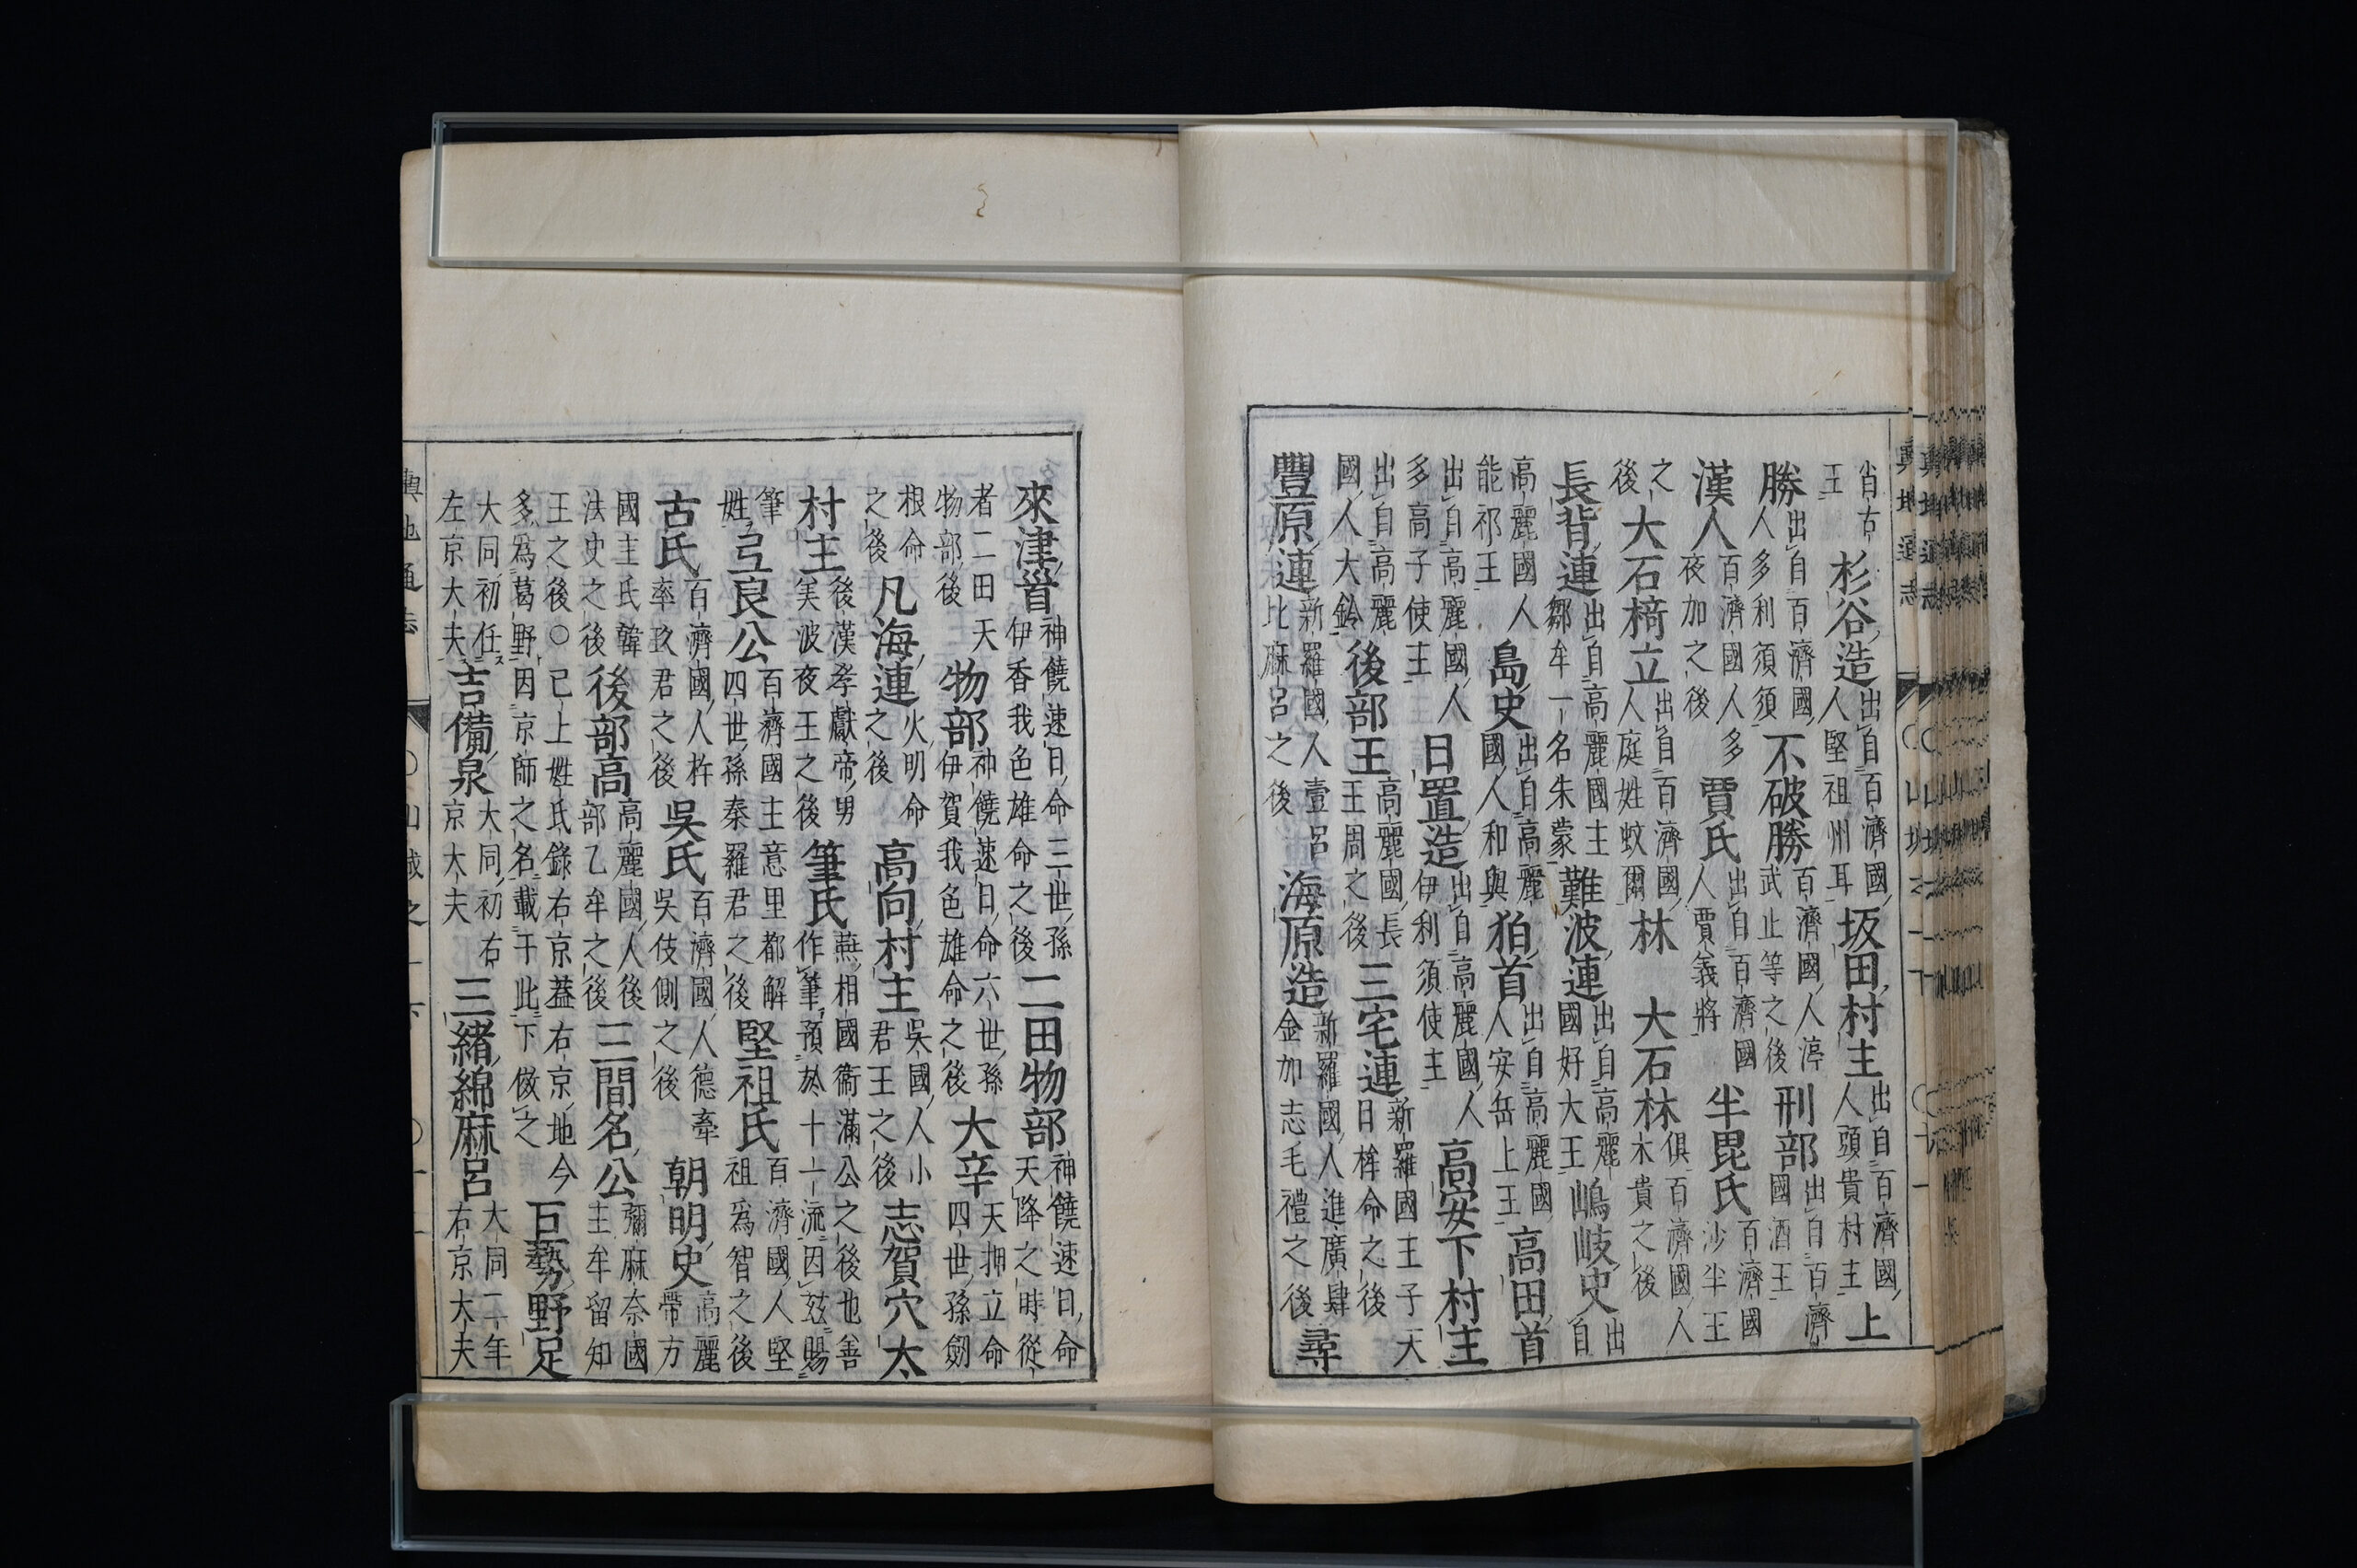 肖古王杉谷造出自百濟國人堅祖州耳坂田村主出自百濟國人頭貴村主上
勝出自百濟國人多利須須不破勝百濟國人渟武止等之後刑部出自百濟國酒王
漢人百濟國人多夜加之後賈氏出自百濟國人賈義將半毘氏百濟國沙半王
之後大石椅立出自百濟國人庭姓蚊爾林大石林俱百濟國人木貴之後
長背連出自高麗國主鄒牟一名朱蒙難波連出自高麗國好大王嶋岐史出自
高麗國人能祁王島史出自高麗國人和與狛首出自高麗國人安岳上王高田首
出自高麗國人多高子使主日置造出自高麗國人伊利須使主高安下村主
出自高麗國人大鈴後部王高麗國長王周之後三宅連新羅國王子天日桙命之後
豐原連新羅國人壹呂比麻呂之後海原造新羅國人進廣肆金加志毛禮之後尋
來津首神饒速日命三世孫伊香我色雄命之後二田物部神饒速日命天降之時從
者二田天物部後物部神饒速日命六世孫伊賀我色雄命之後大辛天押立命四世孫劔
根命之後凡海連火明命之後高向村主吳國人小君王之後志賀穴太
村主後漢孝獻帝男美波夜王之後筆氏燕相國衞滿公之後也善作筆預於十一流因茲賜
筆姓弖良公百濟國主意里都解四世孫秦羅君之後堅祖氏百濟國人堅祖爲智之後
古氏百濟國人杵率玖君之後吳氏百濟國人德率吳伎側之後朝明史高麗帶方
國主氏韓法史之後後部高高麗國人後部乙牟之後三間名公彌麻奈國主牟留知
王之後○已上姓氏錄右京蓋右京地今多爲葛野因京師之名載于此下倣之巨勢野足
大同初任左京大夫吉備泉大同初右京大夫三緒綿麻呂大同二年右京大夫